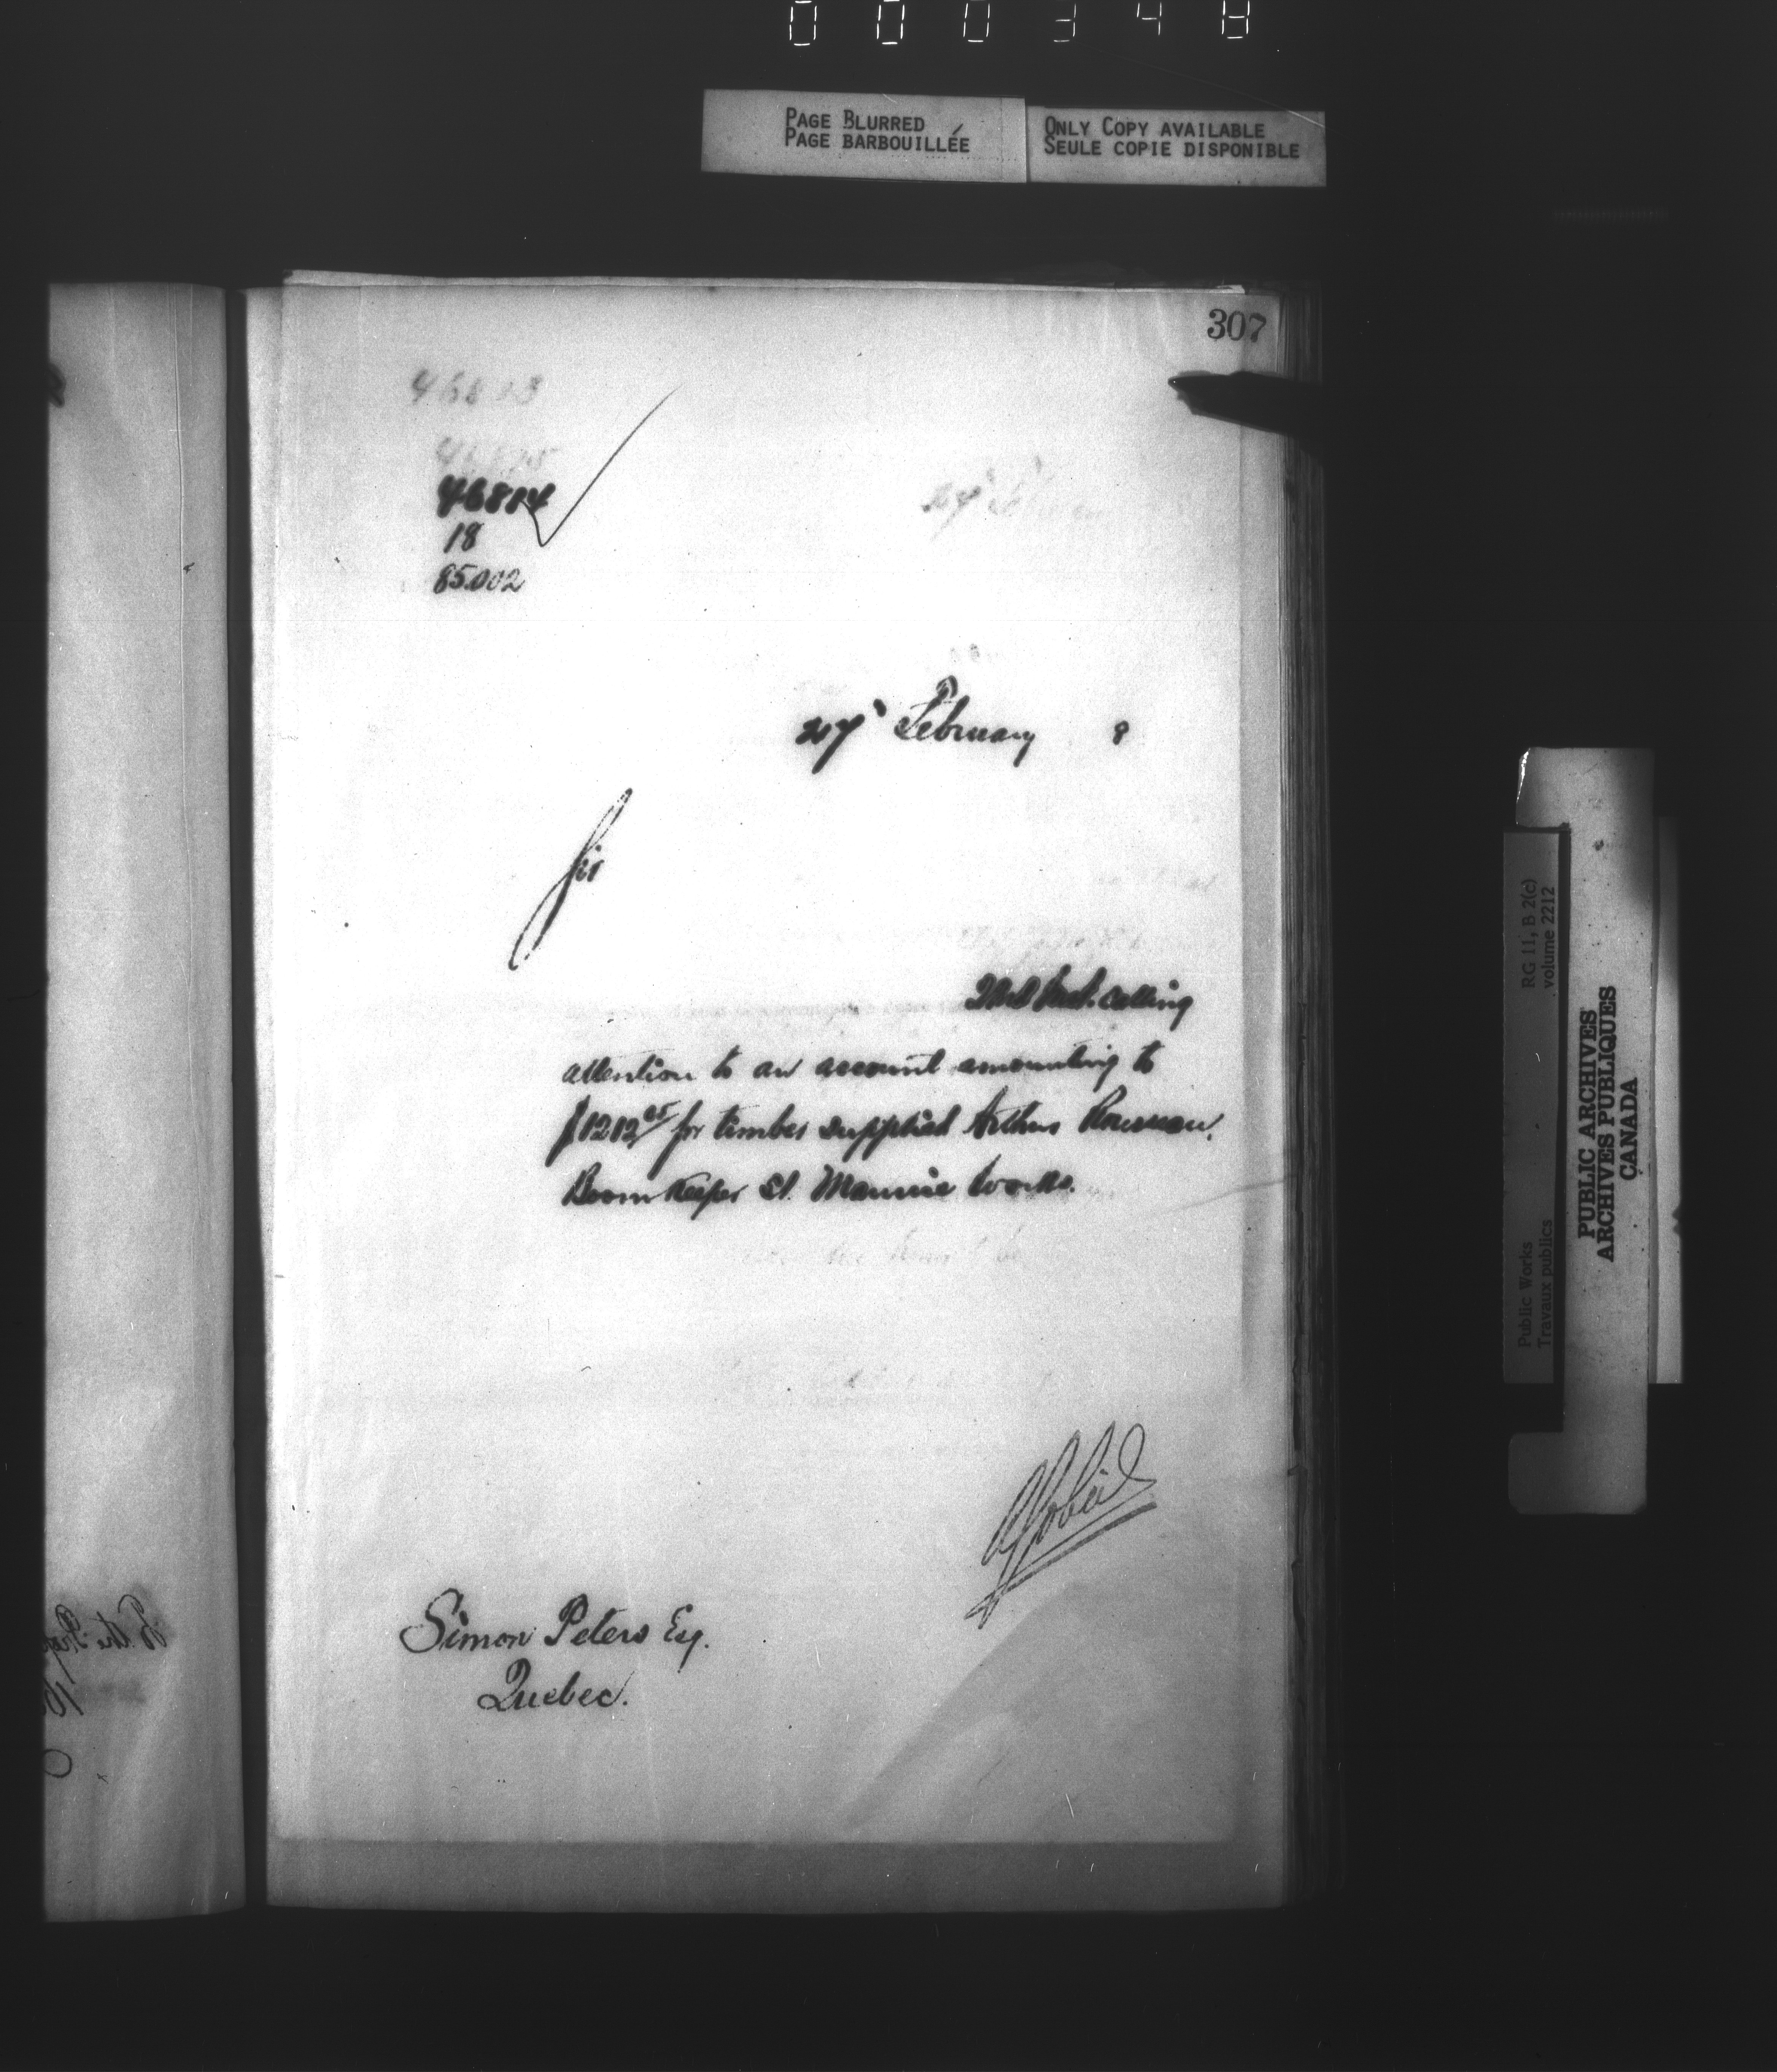 000348
PAGE BLURRED
PAGE BARBOUILLÉE
ONLY COPY AVAILABLE
SEULE COPIE DISPONIBLE
307
46814
18
85.002
27 February 8
Sir
22nd Inst. calling
attention to an account amounting to
for timber supplied Arthur Rousseau.
Boom Keeper St. Maurice Works.
Simon Peters Esq.
Quebec.
Public Works
Travaux publics
RG 11, B 2(c)
volume 2212
PUBLIC ARCHIVES
ARCHIVES PUBLIQUES
CANADA